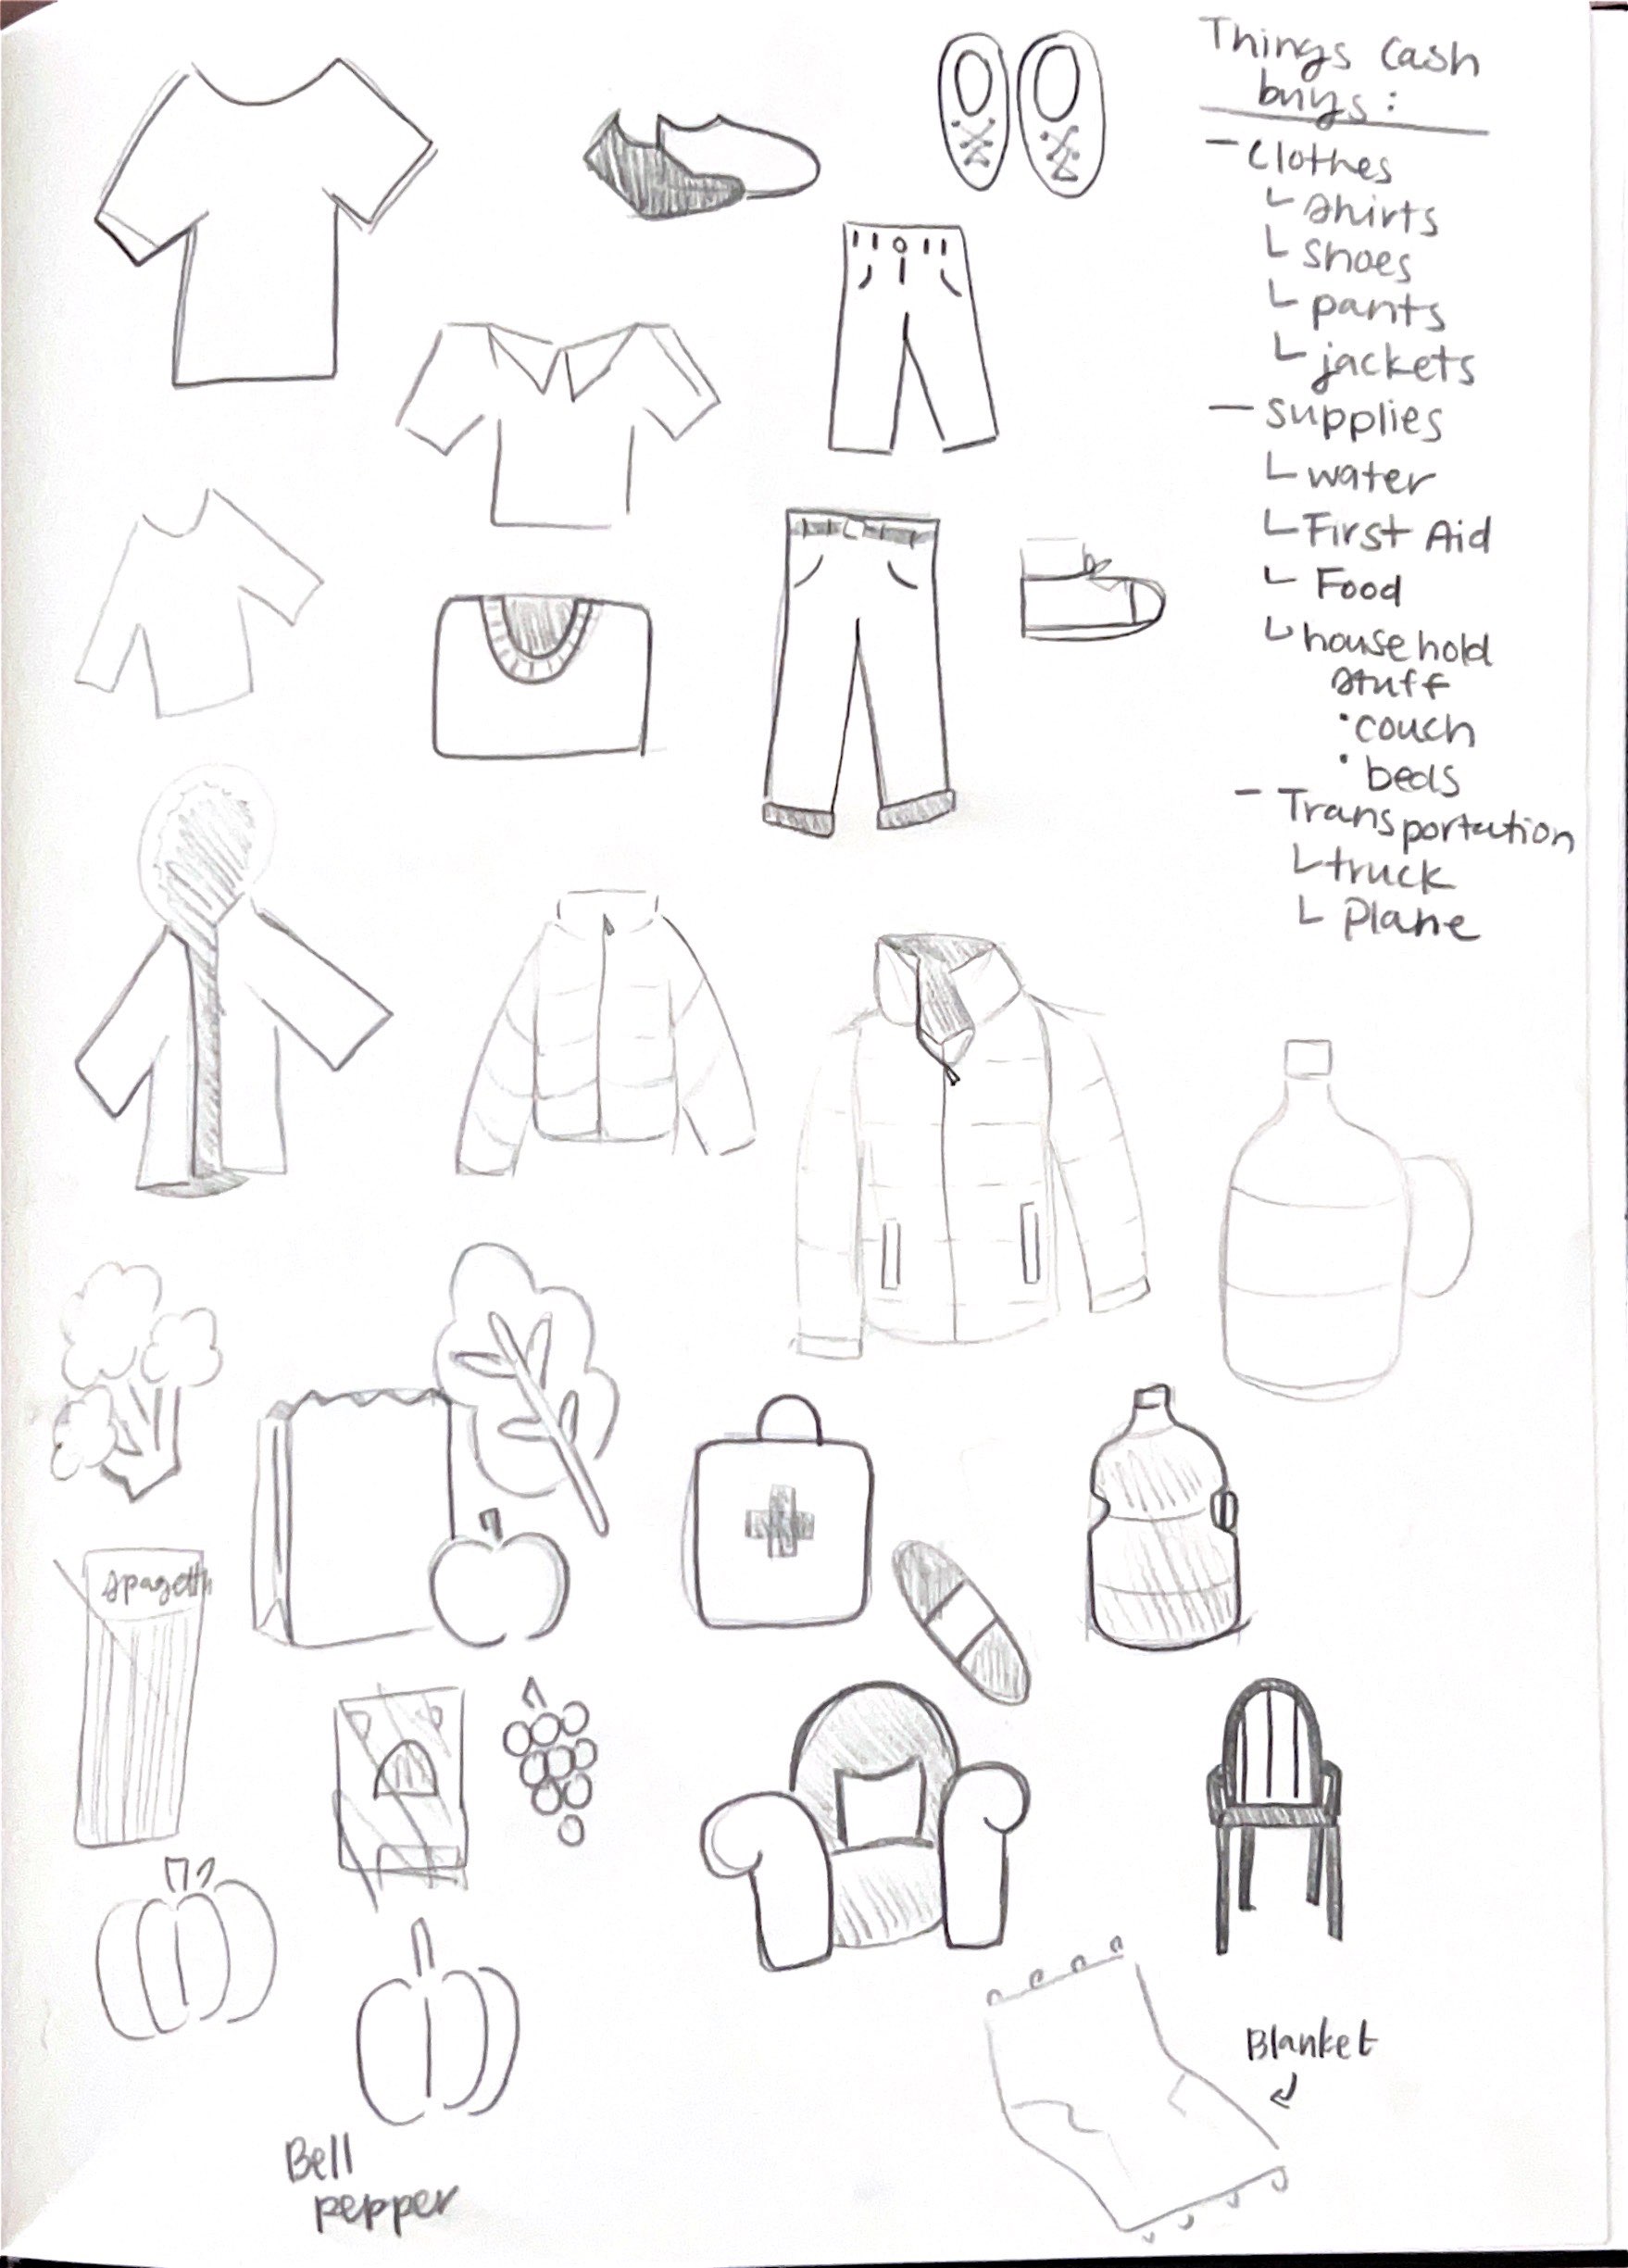 Things Cash
buys:
- Clothes
└ shirts
└ shoes
└ pants
└ jackets
- supplies
└ water
└ First Aid
└ Food
└ household
stuff
• couch
• beds
- Transportation
└ truck
└ Plane
spagetti
Blanket
Bell
pepper